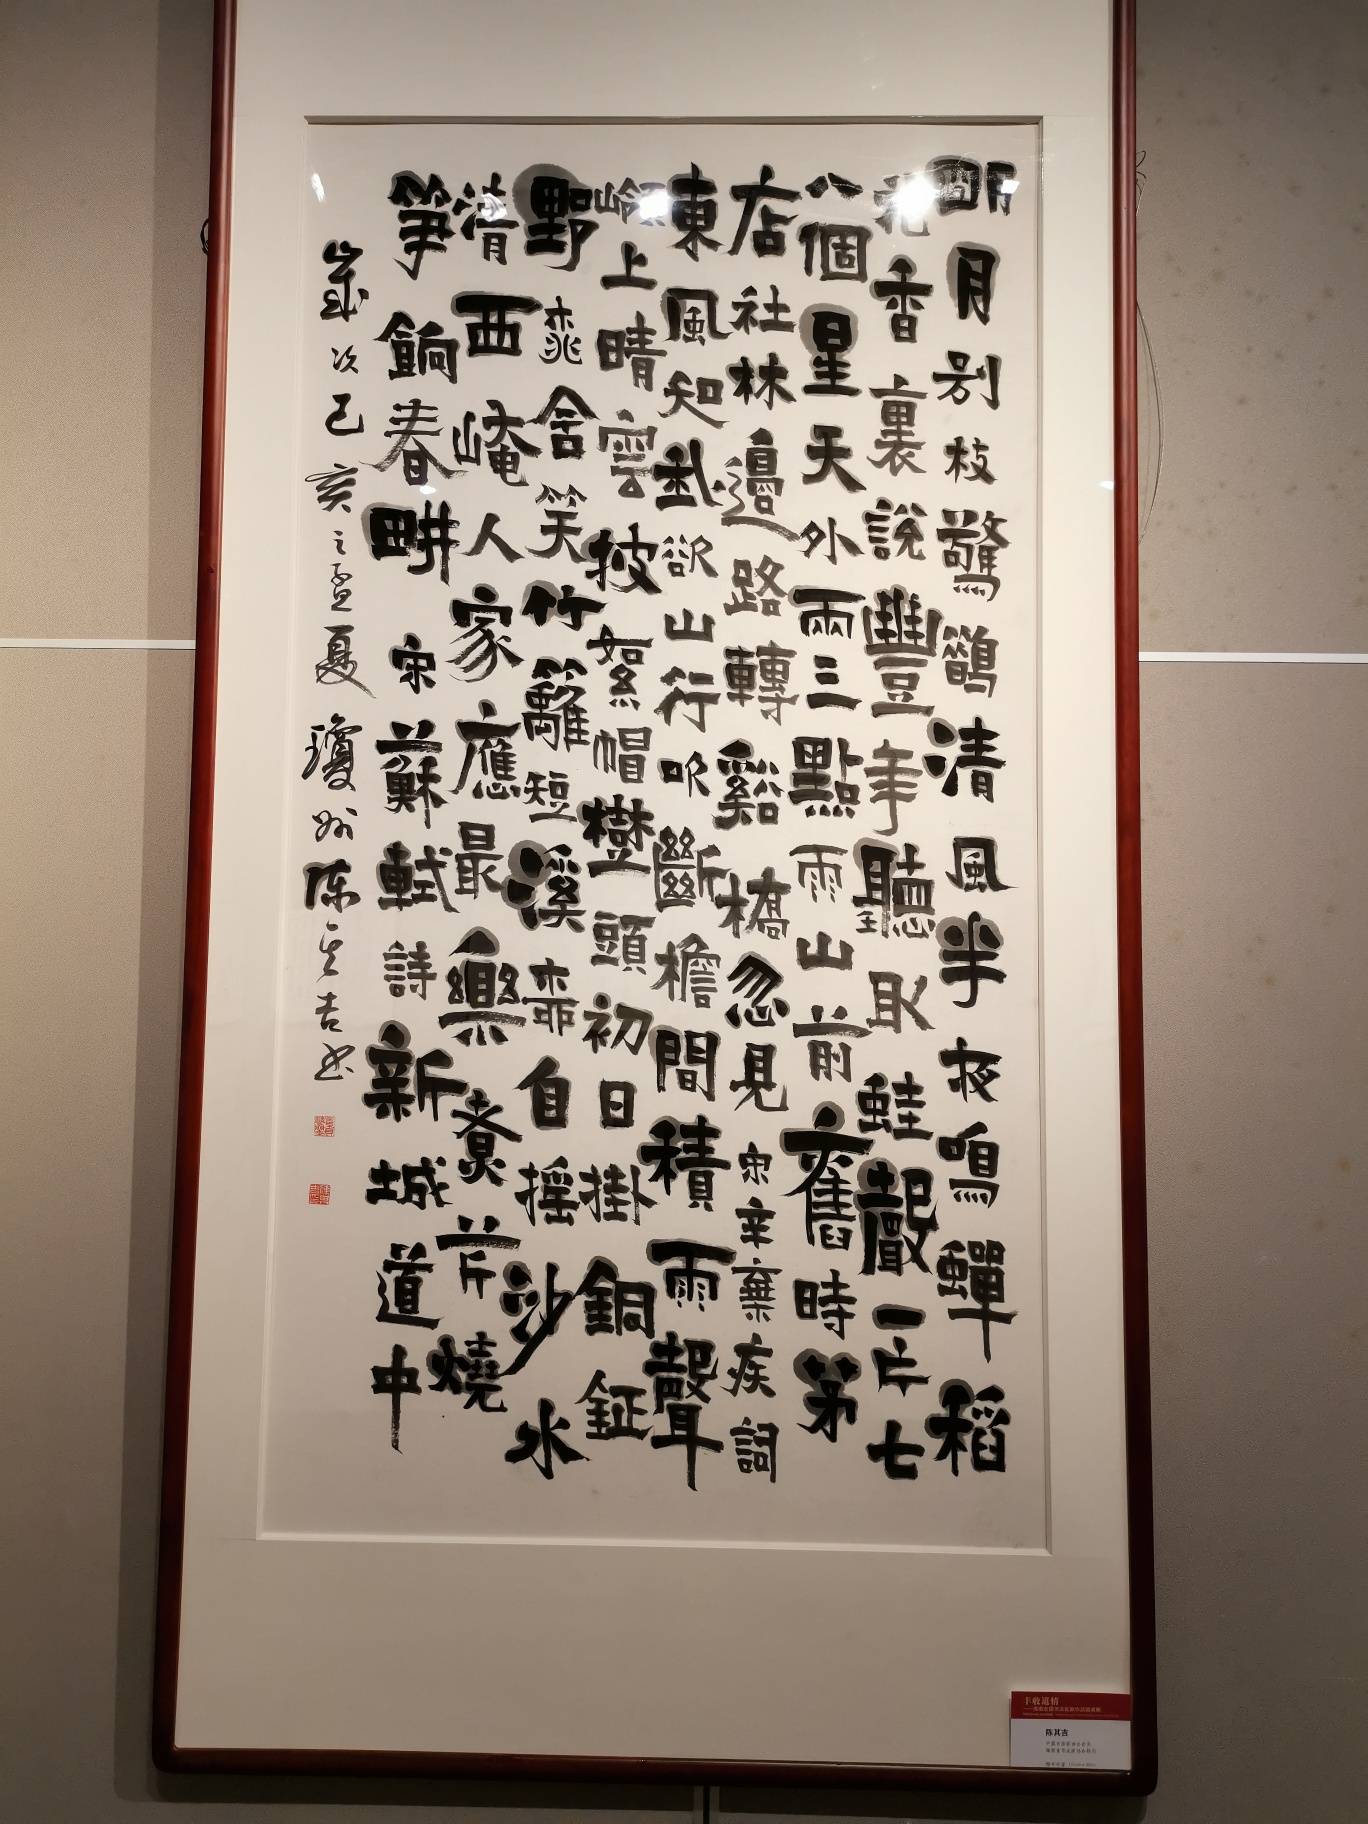 明月别枝驚鵲清風半夜鳴蟬稻
花香裏說豐年聽取蛙聲一片七
八個星天外兩三點雨山前舊時茅
店社林邊路轉谿橋忽見宋辛棄疾詞
東風知我欲山行吹斷檐間積雨聲
嶺上晴雲披絮帽樹頭初日掛銅鉦
野桃含笑竹籬短溪柳自摇沙水
清西崦人家應最樂煮芹燒
筍餉春畊宋蘇軾詩新城道中
歲次己亥之孟夏瓊州陈其吉书
丰收道情
陈其吉